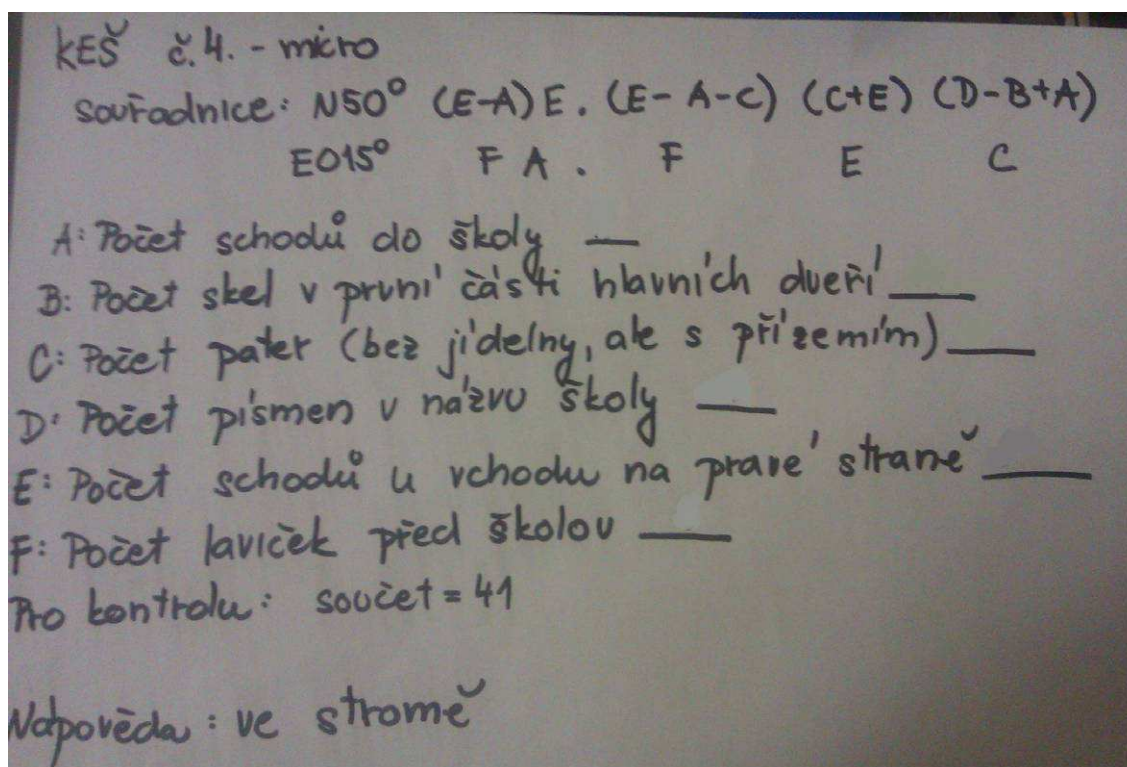 KEŠ č.4. - micro
souřadnice: N50° (E-A) E. (E- A-C) (C+E) (D-B+A)
E015° F A. F E C
A: Počet schodů do školy __
B: Počet skel v první části hlavních dveří ___
C: Počet pater (bez jídelny, ale s přízemím) ___
D: Počet písmen v názvu školy ___
E: Počet schodů u vchodu na pravé straně ___
F: Počet laviček před školou ___
Pro kontrolu: součet = 41
Nápověda: ve stromě